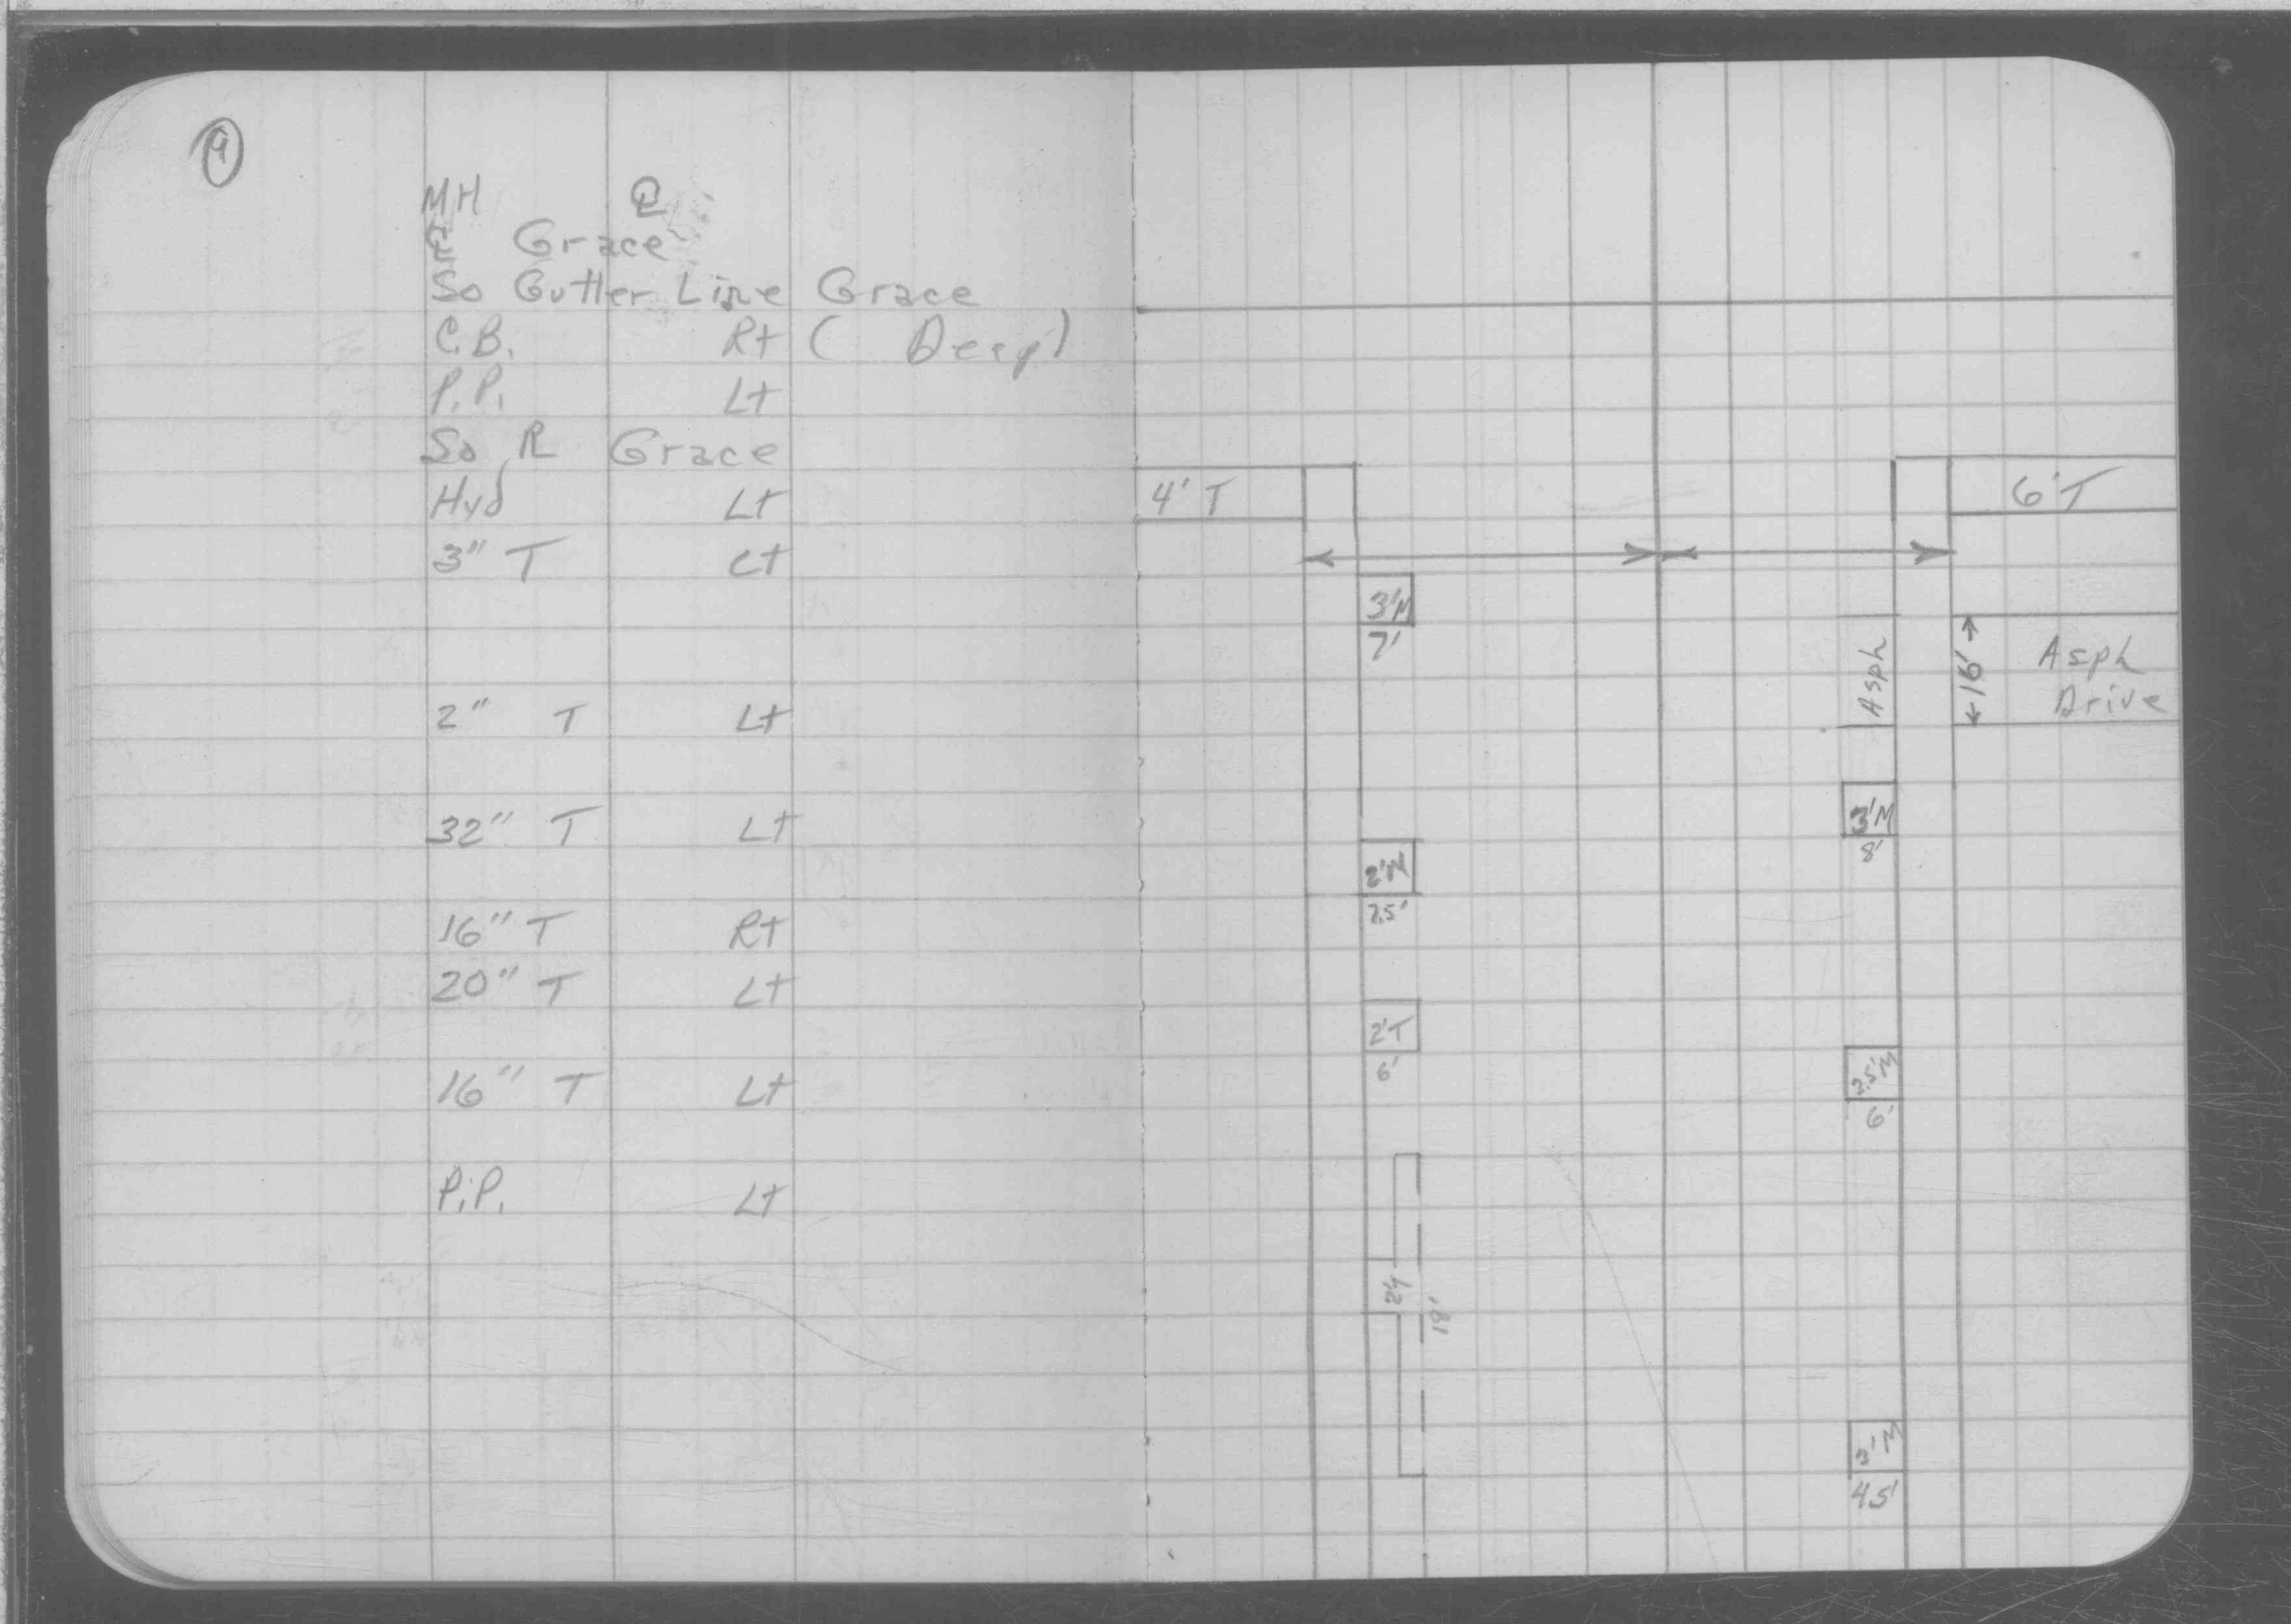 9
MH ℄
℄ Grace
So Gutter Line Grace
C.B. Rt ( Deep)
P.P. Lt
So R Grace
Hyd Lt
3" T Lt
2" T Lt
32" T Lt
16" T Rt
20" T Lt
16" T Lt
P.P. Lt
4' T
6' T
3'M
7'
Asph
16'
Asph
Drive
3'M
8'
2'M
7.5'
2'T
6'
2.5'M
6'
24
18'
3'M
45'